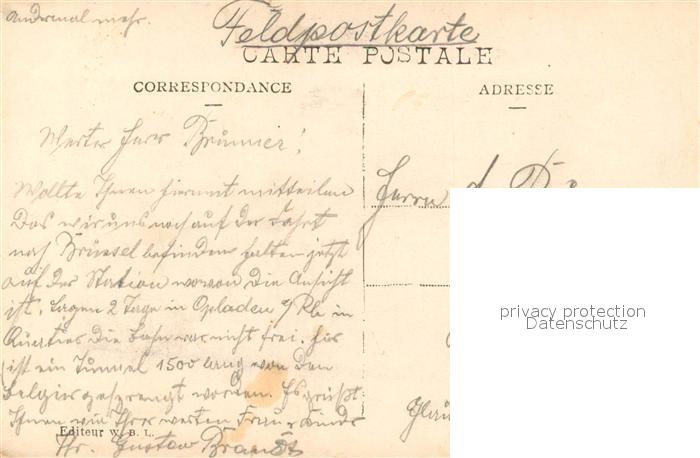 andermal mehr.
Feldpostkarte
CARTE POSTALE
CORRESPONDANCE
ADRESSE
Werter Herr Brünner!
Wollte Ihnen hiermit mitteilen
Das wir uns noch auf der Fahrt
nach Brüssel befinden halten jetzt
auf der Station wovon die Ansicht
ist. Lagen 2 Tage in Opladen a/Rh in
Quartier die Bahn war nicht frei. hir
ist ein Tunnel 1500 lang von den
Belgier gesprengt worden. Es grüßt
Ihnen wie Ihrer werten Frau u Kinder
Ihr. Gustav Brandt
Editeur W. B. L.
Herrn
privacy protection
Datenschutz